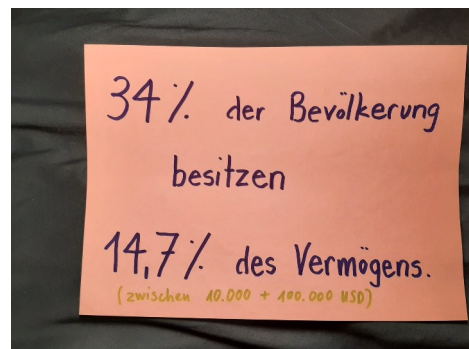 34% der Bevölkerung
besitzen
14,7% des Vermögens.
(zwischen 10.000 + 100.000 USD)